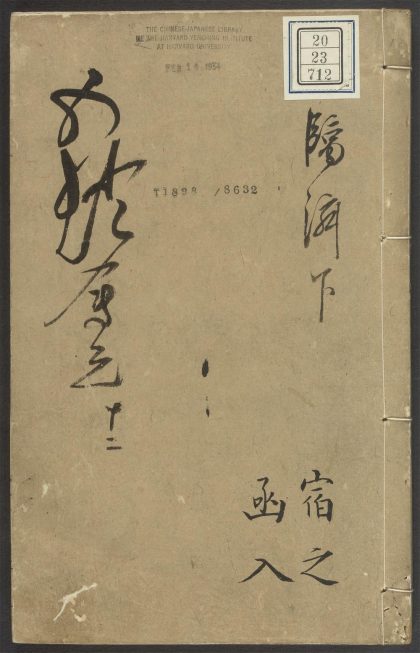 THE CHINESE-JAPANESE LIBRARY
OF THE HARVARD-YENCHING INSTITUTE
AT HARVARD UNIVERSITY
FEB 14 1934
20
23
712
T1898 /8632
臨濟下
宿之
函入
五燈會元 十二